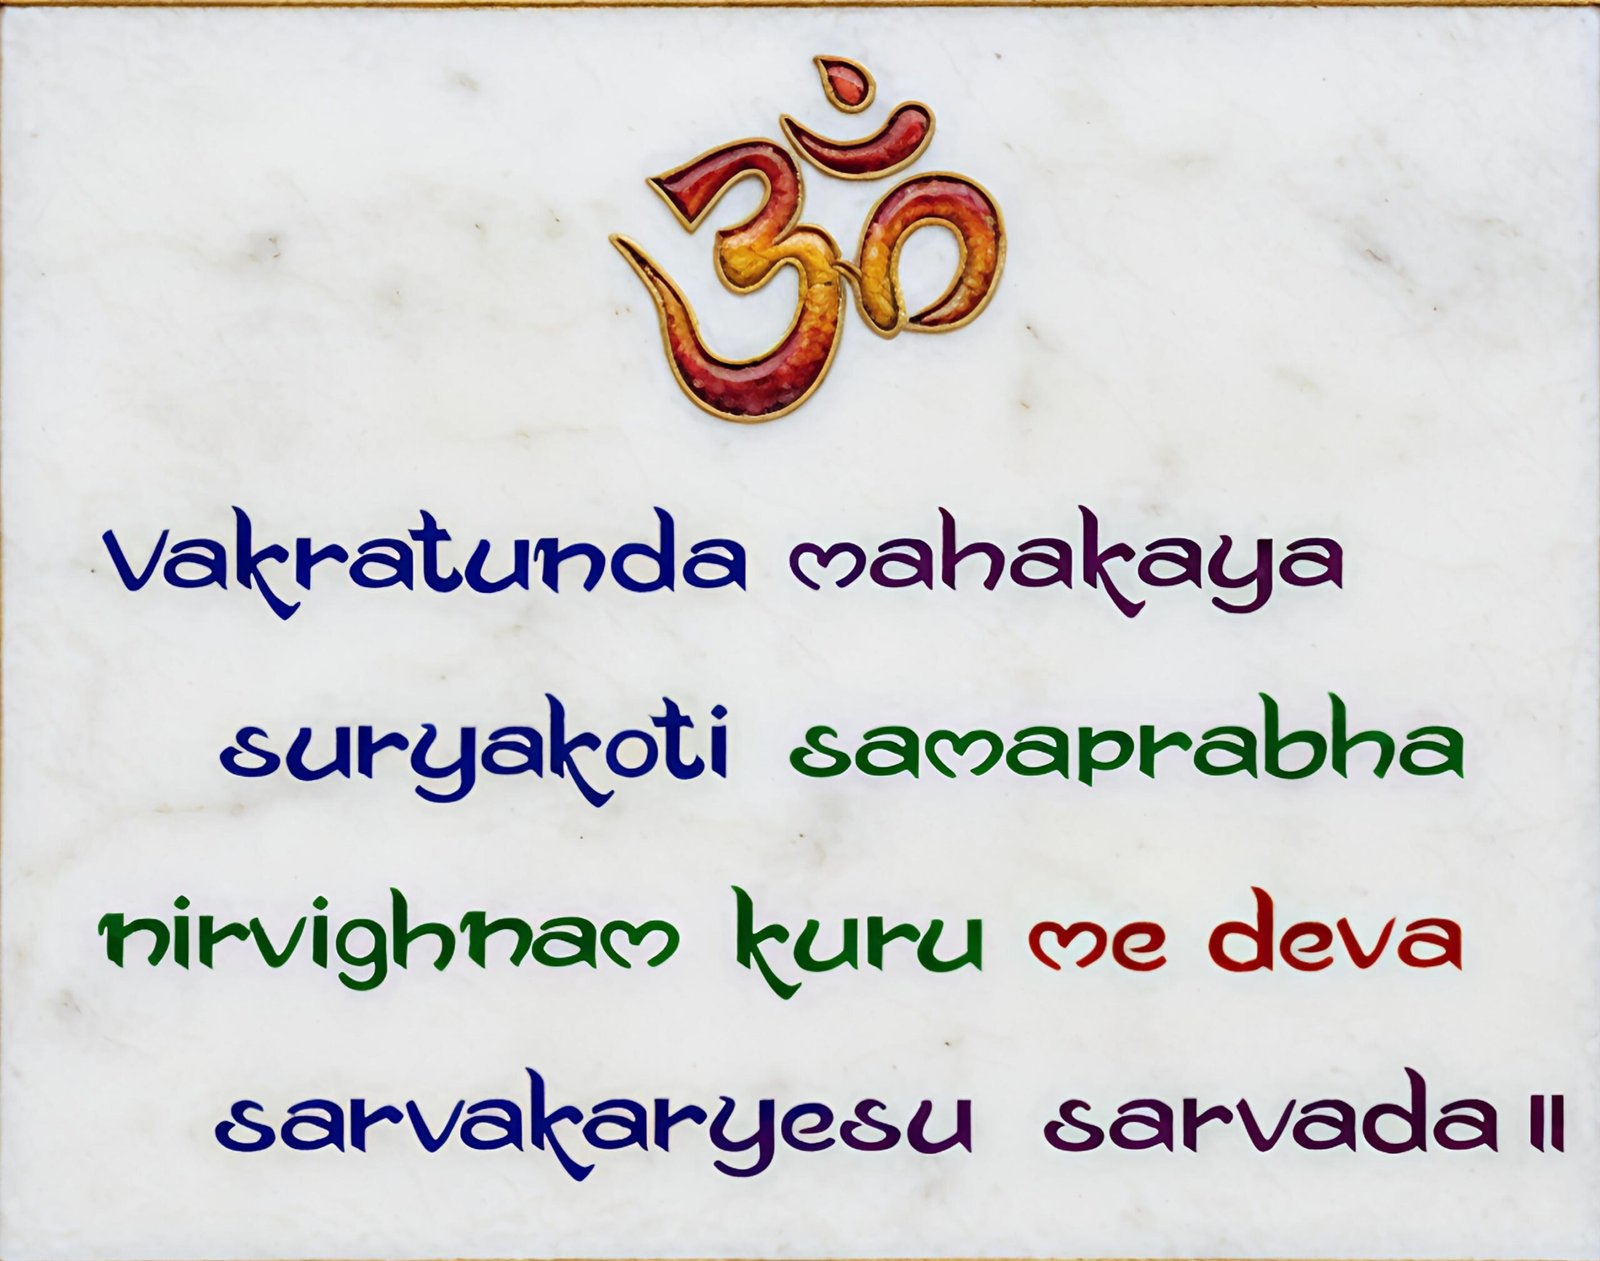 ॐ
vakratunda mahakaya
suryakoti samaprabha
nirvighnam kuru me deva
sarvakaryesu sarvada ॥